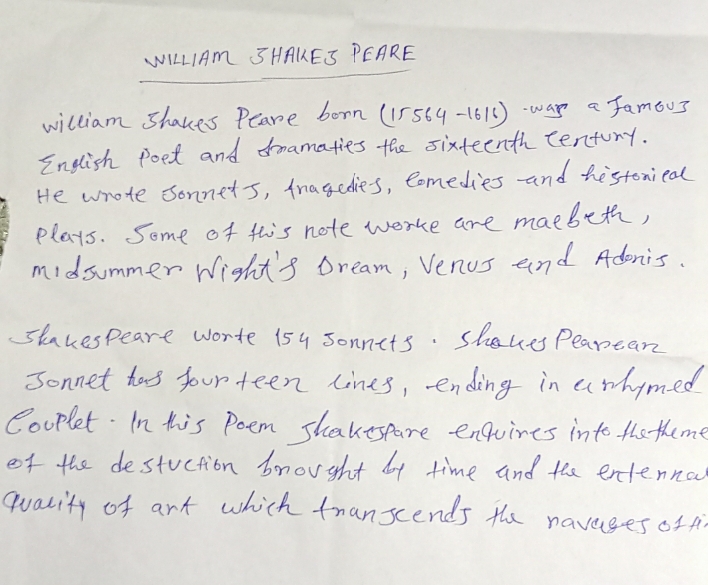 WILLIAM SHAKES PEARE
William Shakes Peare born (15564-1616) was a famous
English Poet and dramaties the sixteenth Century.
He wrote Sonnets, tragedies, Comedies and historical
Plays. Some of this note worke are macbeth,
midsummer Night's Dream, Venus and Adonis.
Shakes Peare worte 154 Sonnets. Shakes Pearean
Sonnet has four teen lines, ending in a rhymed
Couplet. In this Poem Shakespare enquires into the theme
of the destuction brought by time and the enternal
Quality of art which transcends the ravages of